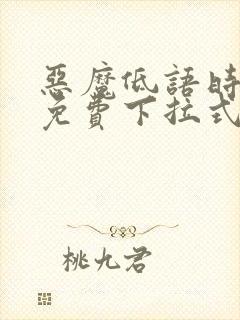 惡魔低語時
免費下拉式
桃九君